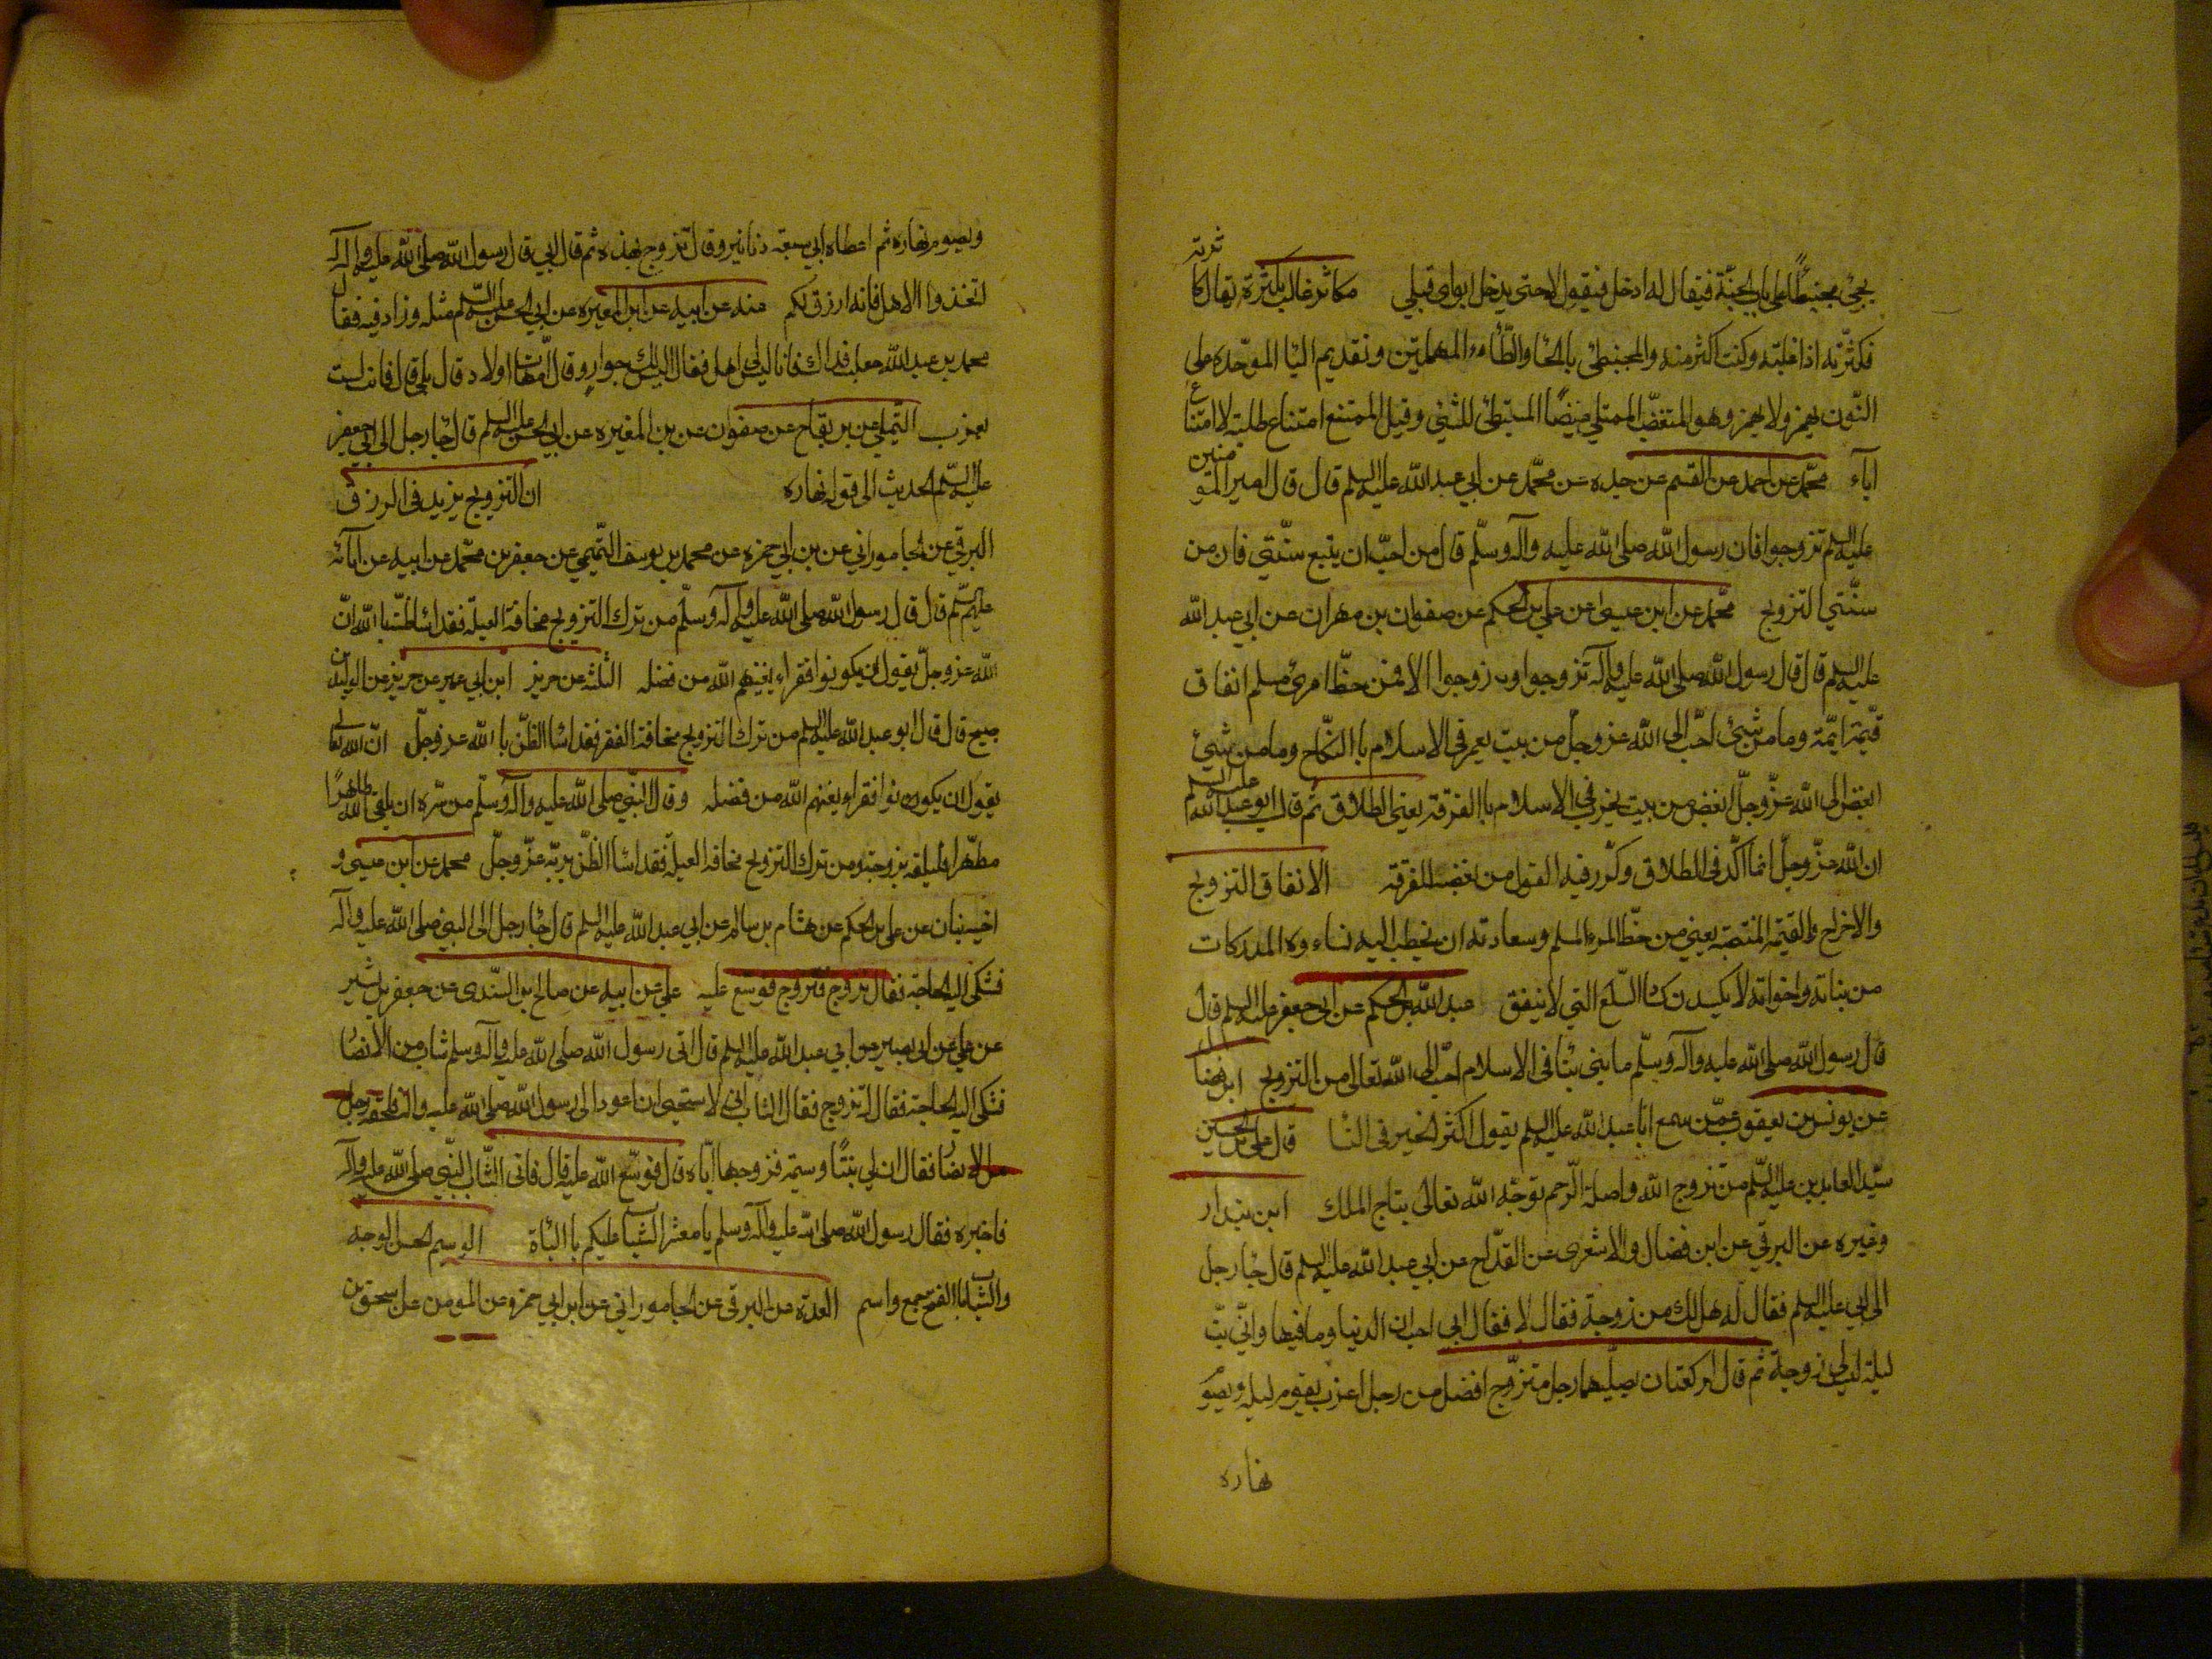 يجئ محبنطئًا على باب الجنّة فيقال له ادخل فيقول لا حتى يدخل ابواى قبلي مكاثر غالب بكثرة يقال كا
ثرته
فكثرته اذا غلبته وكنت اكثر منه والمحبنطئ بالحاء والطّاء المهملتين وتقديم البا الموحّده على
النّون يهمز ولا يهمز وهو المتغضّب الممتلي غيضًا المستبطئ للشئ وقيل الممتنع امتناع طلبة لا امتناع
اباء محمّد عن احمد عن القسم عن جده عن محمّد عن ابي عبد الله عليه السلم قال قال امير المؤمنين
عليه السلم تزوجوا فان رسول الله صلى الله عليه وآله وسلّم قال من احبّ ان يتبع سنّتي فان من
سنّتي التزويج محمّد عن ابن عيسى عن علي بن الحكم عن صفوان بن مهران عن ابي عبد الله
عليه السلم قال قال رسول الله صلى الله عليه وآله تزوجوا وزوجوا الا فمن حظّ امرئ مسلم انفاق
قيّمة ايّمة وما من شئ احبّ الى الله عز وجلّ من بيت يعمر في الاسلام باالنكاح وما من شئ
ابغض الى الله عزّ وجلّ ابغض من بيت يخرب في الاسلام باالفرقة يعني الطلاق ثم قال ابو عبد الله عليه السلم
ان الله عزّ وجلّ انما اكّد في الطلاق وكرّر فيه القول من بغضه الفرقة الانفاق التزويج
والاخراج والقيّمة المنتصبة يعني من حظّ المرء المسلم وسعادته ان يخطب اليه نساءه المدركات
من بناته واخواته لا يكسدن كساد السّلع التي لا ينفق عبد الله بن الحكم عن ابي جعفر عليه السلم قال
قال رسول الله صلى الله عليه وآله وسلّم ما بني بنا في الاسلام احبّ الى الله تعالى من التزويج ابن فضا
عن يونس بن يعقوب عمّن سمع ابا عبد الله عليه السلم يقول اكثر الخير في النسا قال علي بن الحسين
سيّد العابدين عليه السّلم من تزوج لله واصلة الرّحم توجّه الله تعالى بتاج الملك ابن بندار
وغيره عن البرقي عن ابن فضال والاشعرى عن القدّاح عن ابي عبد الله عليه السلم قال جا رجل
الى ابي عليه السلم فقال له هل لك من زوجة فقال لا فقال ابي احبّ ان الدنيا وما فيها وانّي بتّ
ليلة ليس لي زوجة ثم قال الركعتان يصلّيهما رجل متزوّج افضل من رجل اعزب يقوم ليله ويصوم
نهاره
ويصوم نهاره ثم اعطاه ابي سبعة دنانير وقال تزوج بهذه ثم قال ابي قال رسول الله صلى الله عليه وآله
اتخذوا الاهل فانه ارزق لكم عنه عن ابيه عن ابن المغيره عن ابي الحسن عليه السّلم مثله وزاد فيه فقال
محمد بن عبد الله جعلت فداك فانا ليس لي اهل فقال اليس لك جوار وقال امّهات اولاد قال بلى قال فانت لست
بعزب التيّملي عن بن بقاح عن صفوان عن بن المغيره عن ابي الحسن عليه السلم قال جا رجل الى ابي جعفر
عليه السلم الحديث الى قوله نهاره ان التزويج يزيد في الرزق
البرقي عن الجاموراني عن بن ابي حمزه عن محمد بن يوسف التميمي عن جعفر بن محمّد عن ابيه عن آبائه
عليهم السّلم قال قال رسول الله صلى الله عليه وآله وسلّم من ترك التزويج مخافة العيلة فقد اسا ظنّه بالله انّ
الله عز وجلّ يقول ان يكونوا فقراء يغنهم الله من فضله الثلثة عن حريز ابن ابي عمير عن حريز عن الوليد بن
صبيح قال قال ابو عبد الله عليه السلم من ترك التزويج مخافة الفقر فقد اسا الظنّ باالله عز وجلّ انّ الله تعالى
يقول ان يكونوا فقراء يغنهم الله من فضله وقال النبّي صلى الله عليه وآله وسلّم من سّره ان يلقى الله طاهرًا
مطهّرا فليلقه بزوجة ومن ترك التزويج مخافة العيلة فقد اسا الظنّ بربّه عزّ وجلّ محمد عن ابن عيسى و
اخيه بنان عن علي بن الحكم عن هشام بن سالم عن ابي عبد الله عليه السلم قال جا رجل الى النبي صلى الله عليه وآله
فشكى اليه الحاجة فقال تزوج فتزوج فوسّع عليه علي عن ابيه عن صالح بن السّندى عن جعفر بن بشير
عن علي عن ابي بصير عن ابي عبد الله عليه السلم قال اتى رسول الله صلى الله عليه وآله وسلم شاب من الانصا
فشكى اليه الحاجة فقال له تزوج فقال الشاب اني لاستحيي ان اعود الى رسول الله صلى الله عليه وآله فلحقه رجل
من الانصا فقال ان لي بنتًا وسيمة فزوجها ايّاه قال فوسّع الله عليه قال فاتى الشّاب النبّي صلى الله عليه وآله
فاخبره فقال رسول الله صلى الله عليه وآله وسلم يا معشر الشباب عليكم باالباة الوسيم الحسن الوجه
والشباب باالفتح جمع واسم العدة عن البرقي عن الجاموراني عن ابن ابي حمزه عن المومن عن اسحق بن